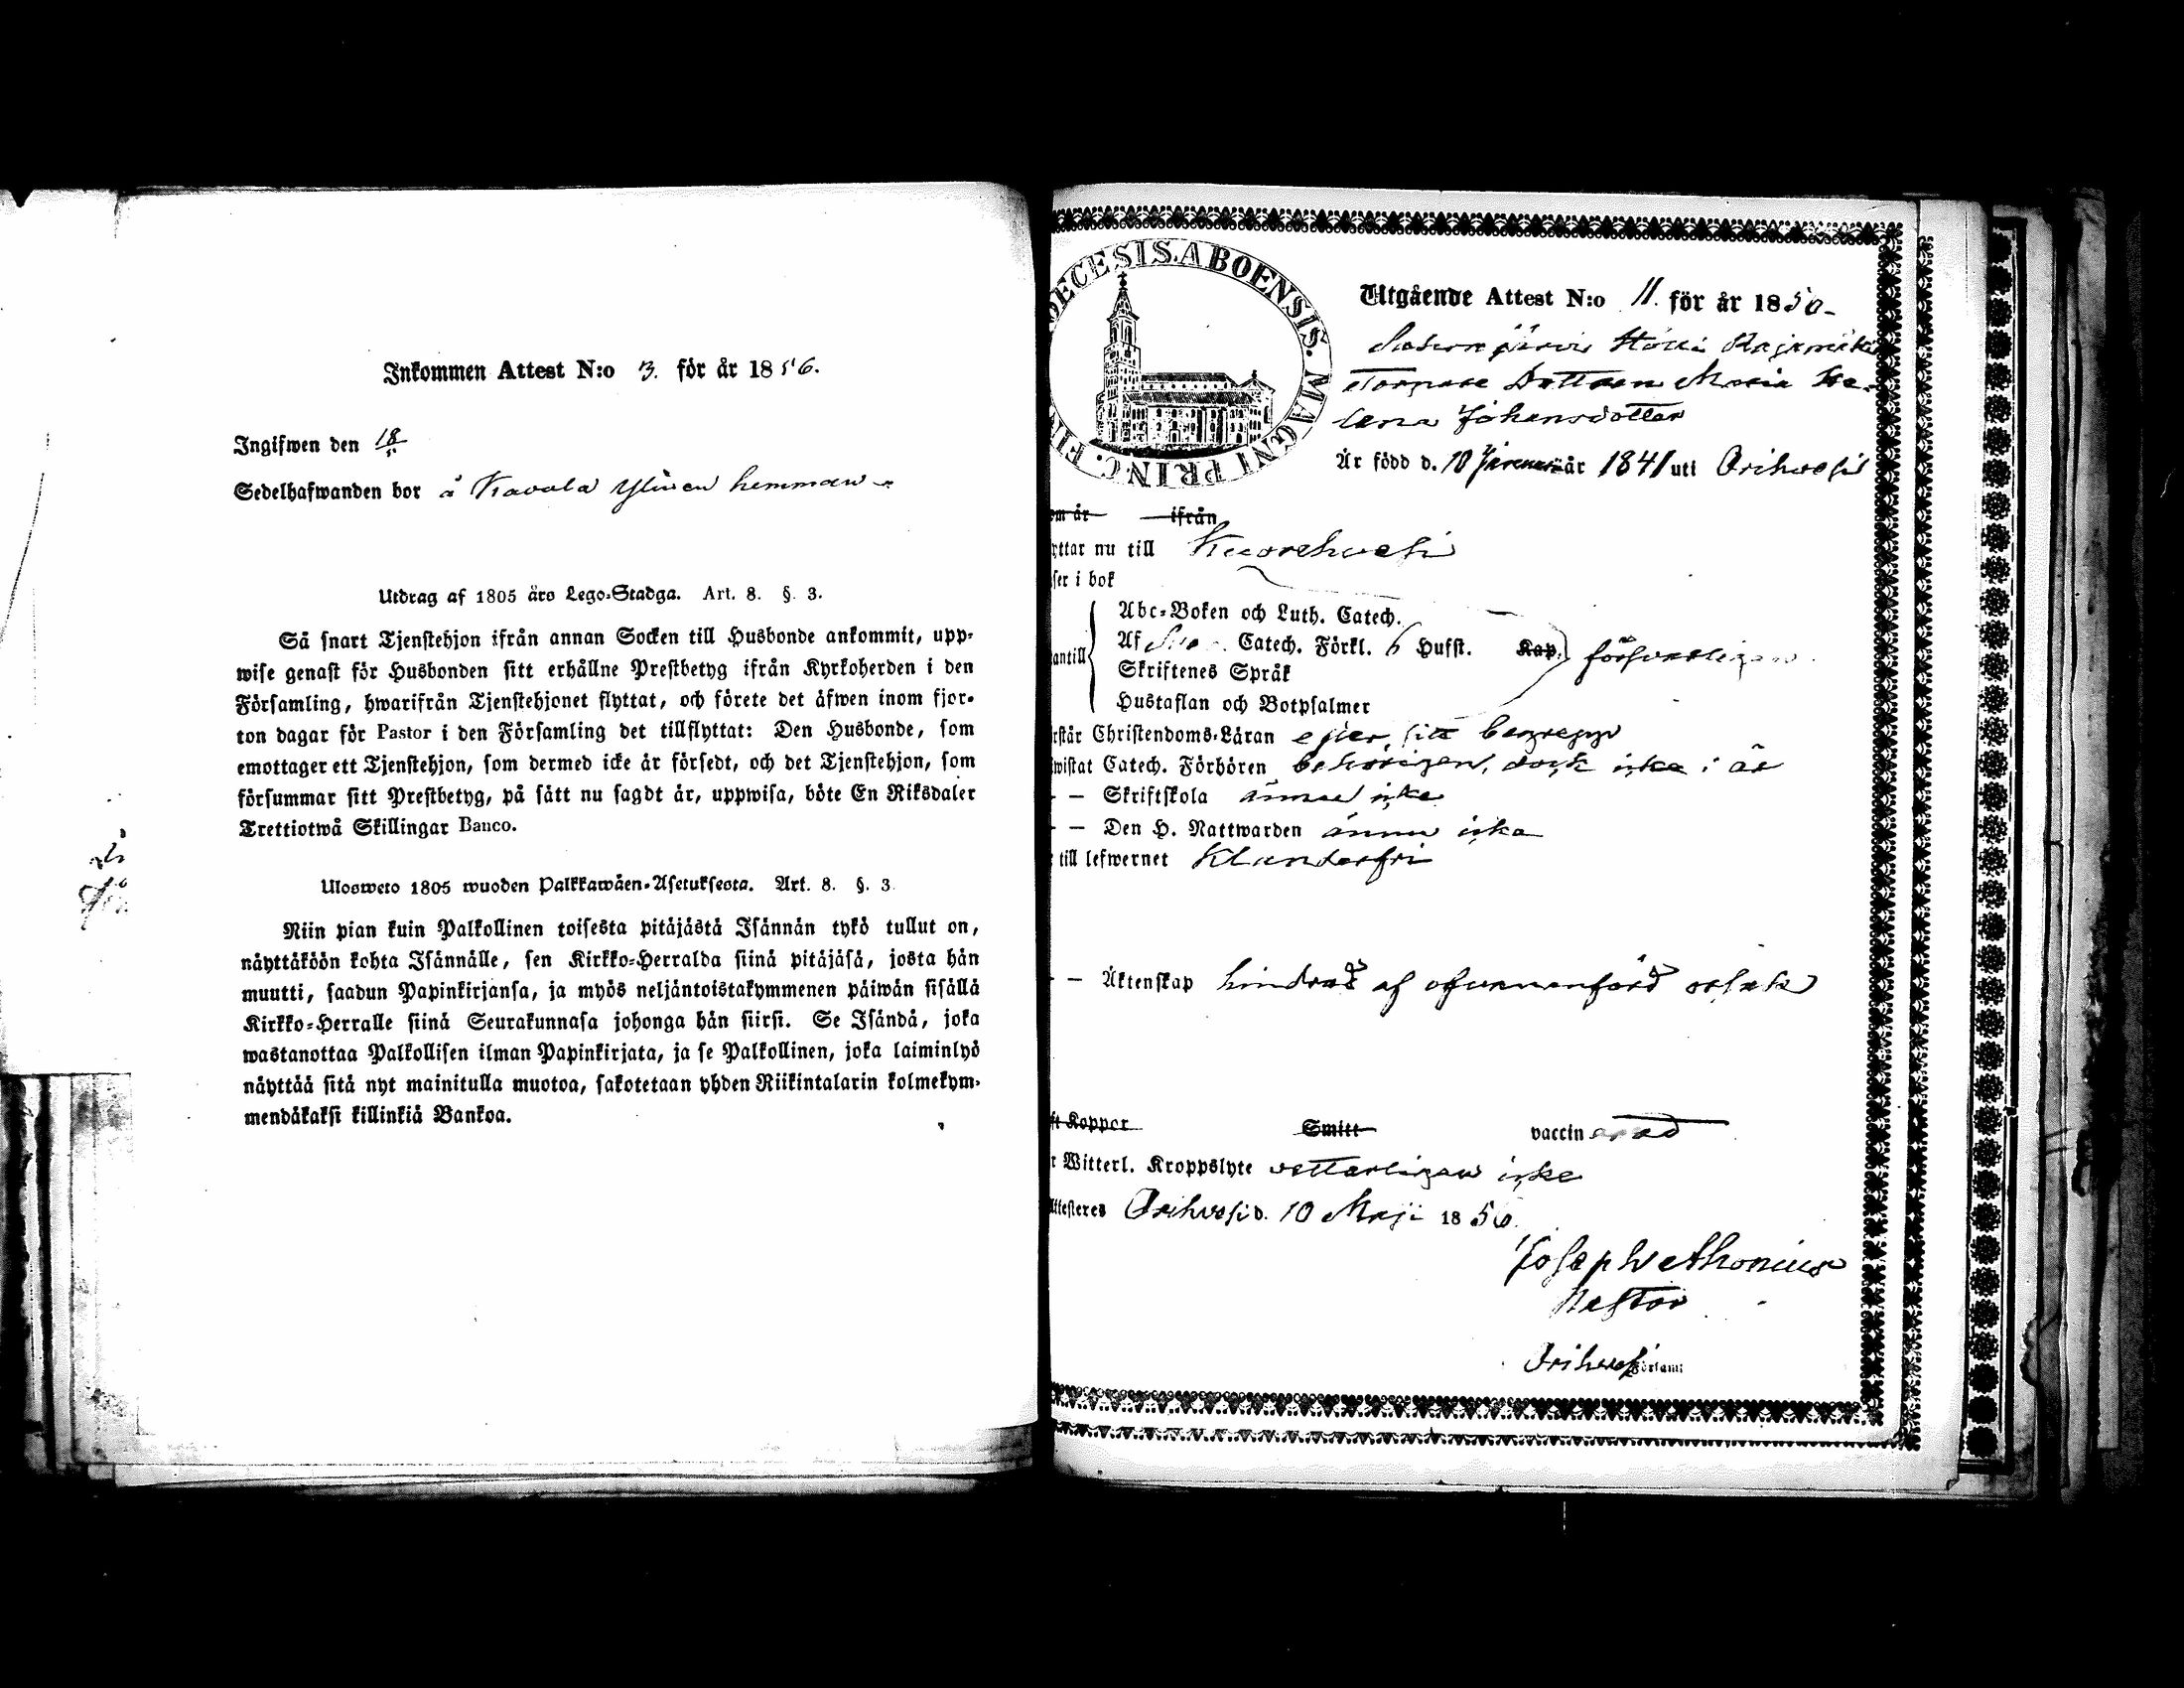 Inkommen Attest N:o 3. för år 1856.
Ingifwen den 18/5
Sedelhafwanden bor å Kavala Ylinen hemman
Utdrag af 1805 års Lego-Stadga. Art. 8. §. 3.
Så snart Tjenstehjon ifrån annan Socken till Husbonde ankommit, upp-
wise genast för Husbonden sitt erhållne Prestbetyg ifrån Kyrkoherden i den
Församling, hwarifrån Tjenstehjonet flyttat, och förete det äfwen inom fjor-
ton dagar för Pastor i den Församling det tillflyttat: Den Husbonde, som
emottager ett Tjenstehjon, som dermed icke är försedt, och det Tjenstehjon, som
försummar sitt Prestbetyg, på sätt nu sagdt är, uppwisa, böte En Riksdaler
Trettiotwå Skillingar Banco.
Ulosweto 1805 wuoden Palkkawäen-Asetuksesta. Art. 8. §. 3
Niin pian kuin Palkollinen toisesta pitäjästä Isännän tykö tullut on,
näyttäköön kohta Isännälle, sen Kirkko-Herralda siinä pitäjäsä, josta hän
muutti, saadun Papinkirjansa, ja myös neljäntoistakymmenen päiwän sisällä
Kirkko-Herralle siinä Seurakunnasa johonga hän siirsi. Se Isändä, joka
wastanottaa Palkollisen ilman Papinkirjata, ja se Palkollinen, joka laiminlyö
näyttää sitä nyt mainitulla muotoa, sakotetaan yhden Riikintalarin kolmekym-
mendäkaksi killinkiä Bankoa.
DECESIS. ABOENSIS. MAGNI PRINC. FIN
Utgående Attest N:o 11. för år 1856
Rajamäki
Torpare Dottren Maria He-
lena Johansdotter
Är född d. 10 Januari år 1841 uti Orihvesi
om år ifrån
yttar nu till Kuorehvesi
ser i bok
Abc-Boken och Luth. Catech.
Af Sve. Catech. Förkl. 6 Hufst. Kap. försvarligen
antill
Skriftenes Språk
Hustaflan och Botpsalmer
rstår Christendoms-Läran efter sitt begrepp
wistat Catech. Förhören behörigen, dock icke i år
— Skriftskola ännu icke
— Den H. Nattwarden ännu icka
till lefwernet Klanderfri
— Äktenskap hindrad af ofvananförd orsak
ft Koppor Smitt vaccinerad
r Witterl. Kroppslyte vetterligen icke
Attesteres Orihvesi d. 10 Maji 1856.
Joseph Ahonius
Pastor
Orihvesi Församl